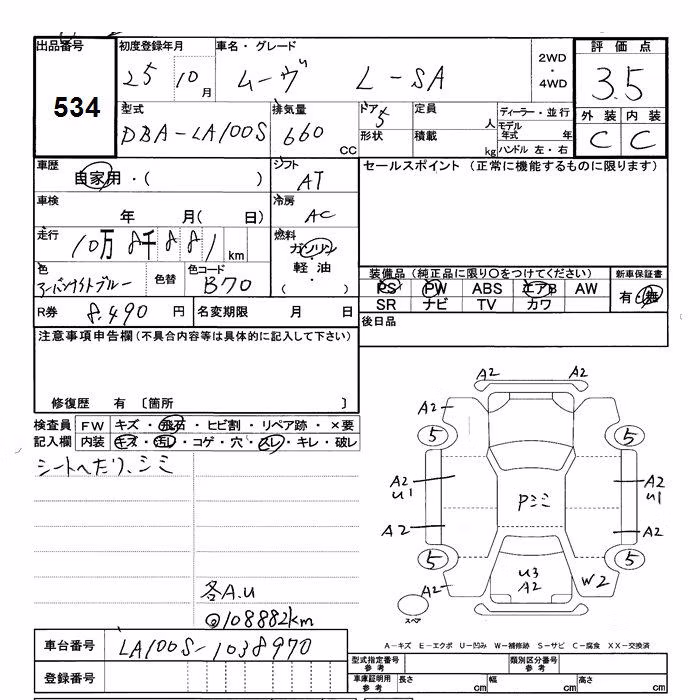 出品番号 初度登録年月 車名・グレード 2WD ・ 4WD 評価点
534 25 10月 ムーヴ L-SA 3.5
型式 排気量 ドア 定員 ディーラー・並行 外装 内装
DBA-LA100S 660 CC 5 人 モデル年式 年 C C
形状 積載 kg ハンドル 左・右
車歴 シフト セールスポイント (正常に機能するものに限ります)
自家用・( ) AT
車検 冷房
年 月( 日) AC
走行 燃料
10万8千881km ガソリン
色 色替 色コード ・軽油・
アーバンナイトブルー B70 ( )
装備品(純正品に限り○をつけてください) 新車保証書
PS PW ABS エアB AW 有・無
SR ナビ TV カワ
R券 8,490円 名変期限 月 日 後日品
注意事項申告欄(不具合内容等は具体的に記入して下さい)
修復歴 有 〔箇所 〕
検査員 FW キズ・飛石・ヒビ割・リペア跡・×要
記入欄 内装 キズ・汚レ・コゲ・穴・スレ・キレ・破レ
シートへたり、シミ
A2 A2
A2
5 5
A2 U1 Pミミ A2 U1
A2 A2
5 5
A2 U3 A2 W2
スペア
各A.U
◎108882km
車台番号 LA100S-1038970
A-キズ E-エクボ U-凹み W-補修跡 S-サビ C-腐食 XX-交換済
登録番号
型式指定番号 参考 類別区分番号 参考
車庫証明用 参考 長さ cm 幅 cm 高さ cm